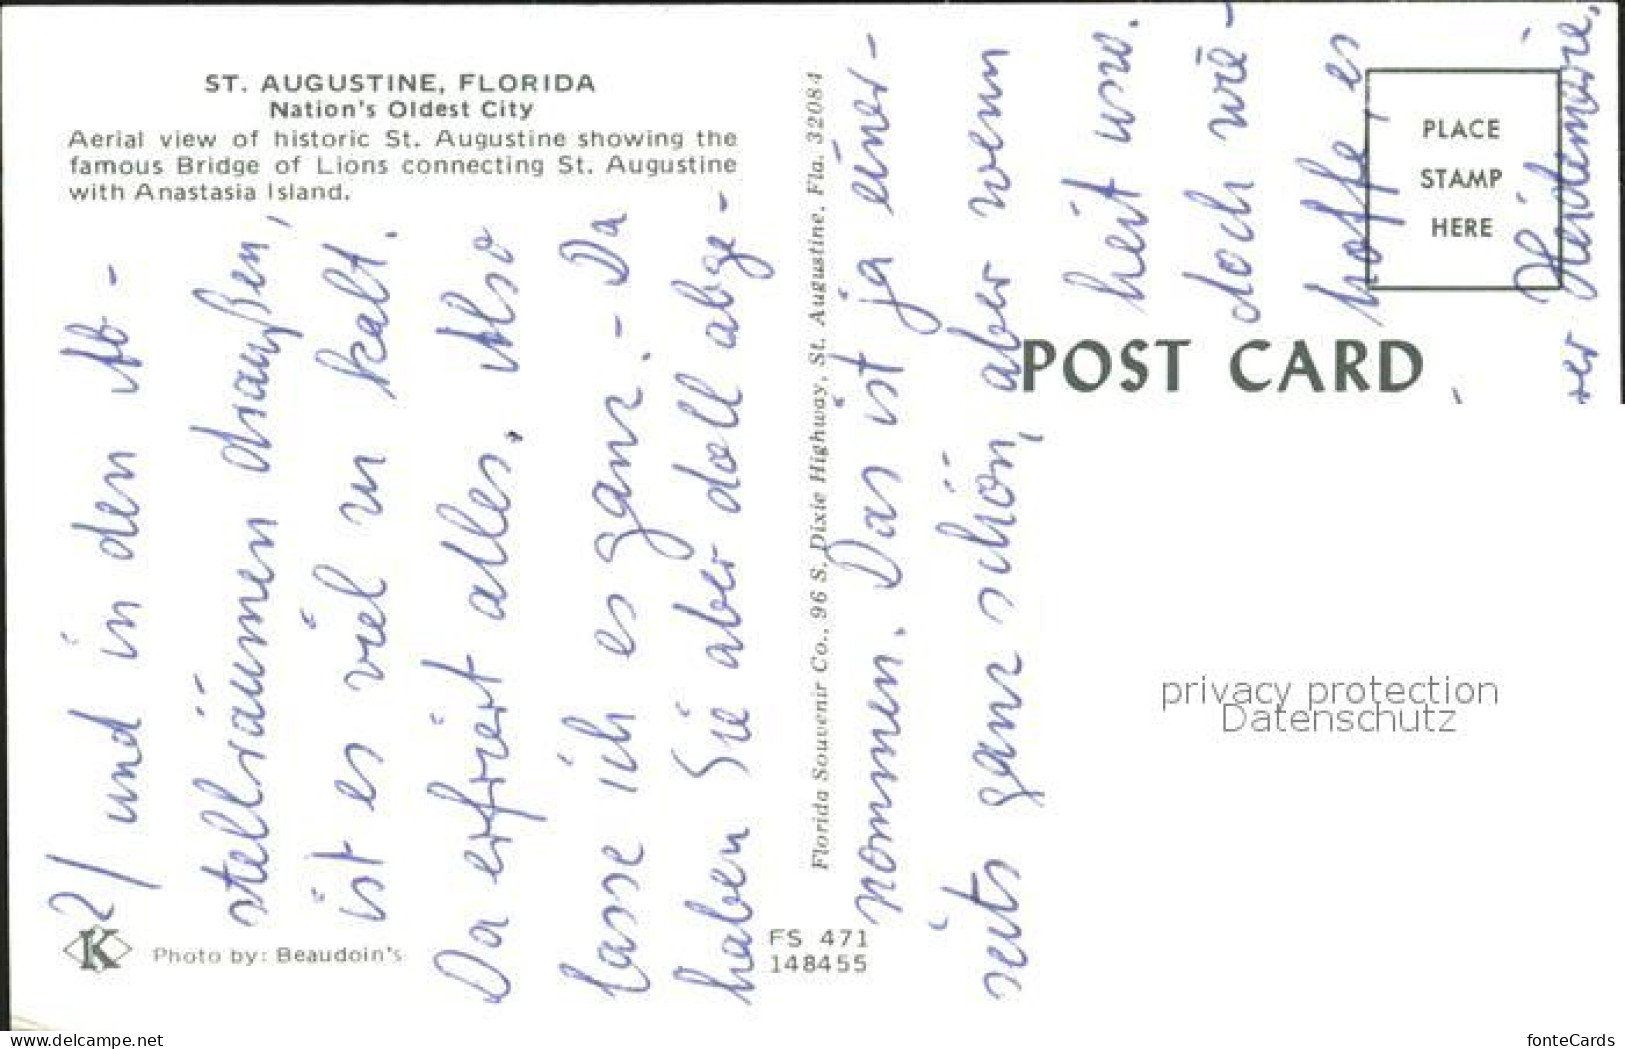 ST. AUGUSTINE, FLORIDA
Nation's Oldest City
Aerial view of historic St. Augustine showing the
famous Bridge of Lions connecting St. Augustine
with Anastasia Island.
2/ und in den Ab-
stellräumen draußen,
ist es viel zu kalt.
Da erfriert alles. Also
lasse ich es ganz. - Da
haben Sie aber doll abge-
nommen. Das ist ja einer-
seits ganz schön, aber wenn
heit usw.
doch wie-
hoffe, es
Heidemarie,
Florida Souvenir Co., 96 S. Dixie Highway, St. Augustine, Fla. 32084
PLACE
STAMP
HERE
POST CARD
privacy protection
Datenschutz
K
Photo by: Beaudoin's
FS 471
148455
www.delcampe.net
fonteCards